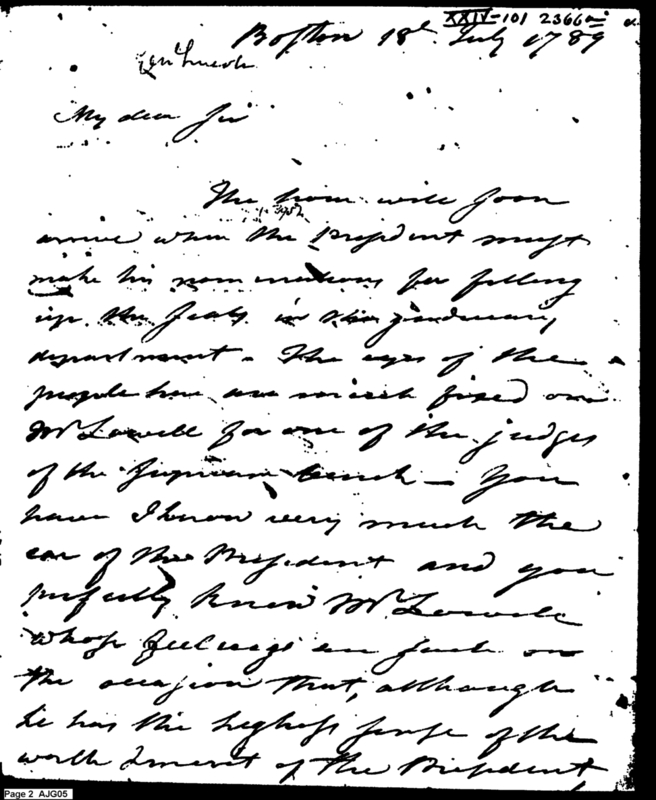 XXIV-101 2366
Boston 18th July 1789
Genl Lincoln
My dear Sir
The hour will soon
arrive when the President must
make his nominations for filling
up the seats in the judiciary
department - The eyes of the
people here are much fixed on
Mr Lowell for one of the judges
of the supreme bench - You
have I know very much the
ear of the President and you
perfectly know Mr Lowell
whose feelings are such on
the occasion that, although
he has the highest sense of the
worth & merit of the President,
Page 2 AJG05